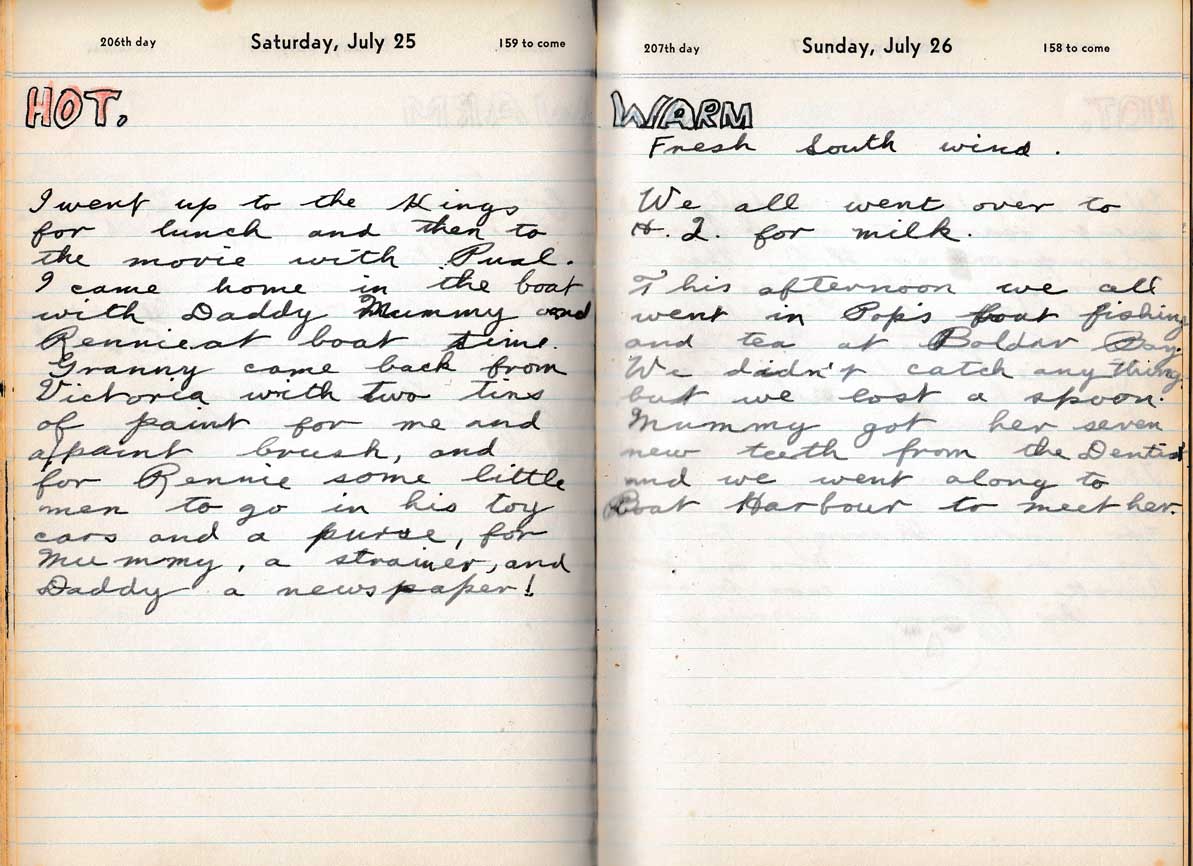 206th day Saturday, July 25 159 to come
HOT.
I went up to the Kings
for lunch and then to
the movie with Pual.
I came home in the boat
with Daddy Mummy and
Rennie at boat time.
Granny came back from
Victoria with two tins
of paint for me and
a paint brush, and
for Rennie some little
men to go in his toy
cars and a purse, for
Mummy, a strainer, and
Daddy a newspaper!
207th day Sunday, July 26 158 to come
WARM
Fresh South wind.
We all went over to
H. I. for milk.
This afternoon we all
went in Pop's boat fishing
and tea at Boldar Bay.
We didn't catch anything
but we lost a spoon.
Mummy got her seven
new teeth from the Dentist
and we went along to
Boat Harbour to meet her.